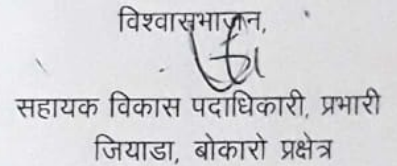 विश्वासभाजन,
सहायक विकास पदाधिकारी, प्रभारी
जियाडा, बोकारो प्रक्षेत्र